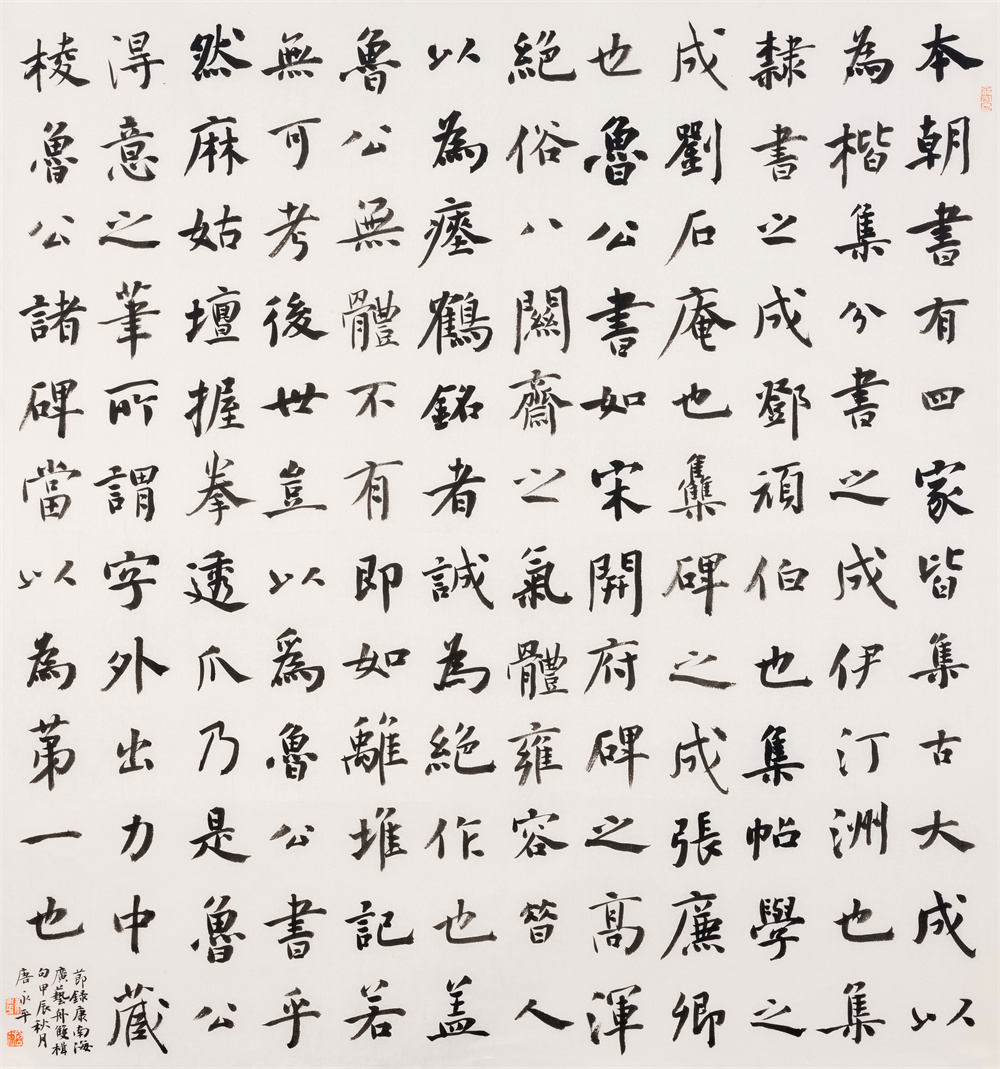 本朝書有四家皆集古大成以
為楷集分書之成伊汀洲也集
隸書之成鄧頑伯也集帖學之
成劉石庵也雧碑之成張廉卿
也魯公書如宋開府碑之高渾
絕俗八關齋之氣體雍容昔人
以為瘞鶴銘者誠為絕作也蓋
魯公無體不有即如離堆記若
無可考後世豈以爲魯公書乎
然麻姑壇握拳透爪乃是魯公
得意之筆所謂字外出力中藏
棱魯公諸碑當以為第一也
節録康南海
廣藝舟雙楫
句甲辰秋月
唐永平